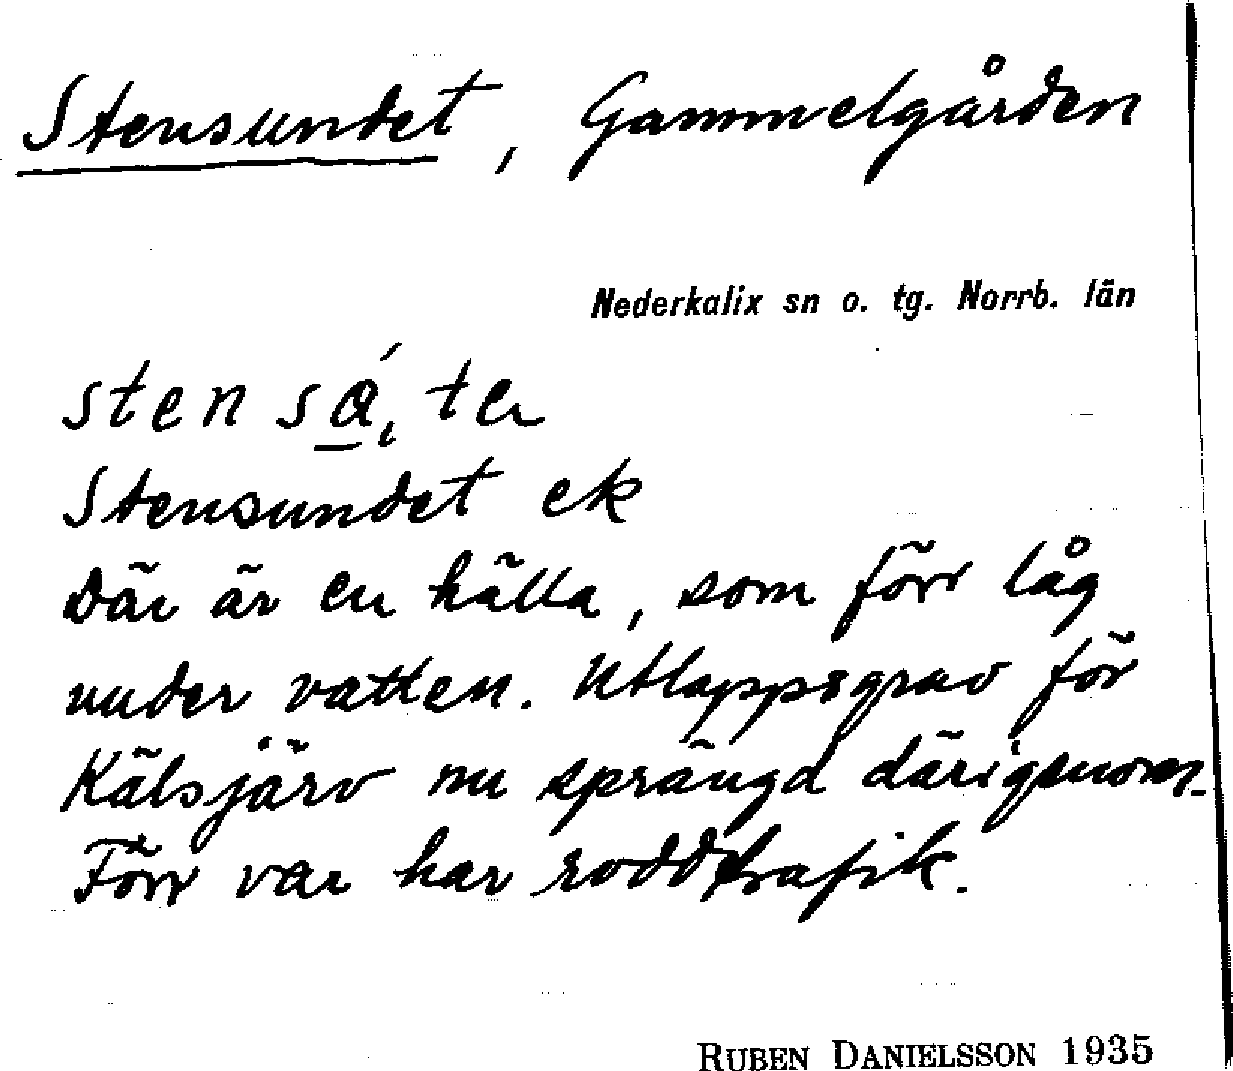 Stensundet, Gammelgården
Nederkalix sn o. tg. Norrb. län
Stensundet ek
Där är en hälla, som förr låg
under vatten. Utloppsgrav för
Kälsjärv nu sprängd därigenom.
Förr var har roddtrafik.
RUBEN DANIELSSON 1935